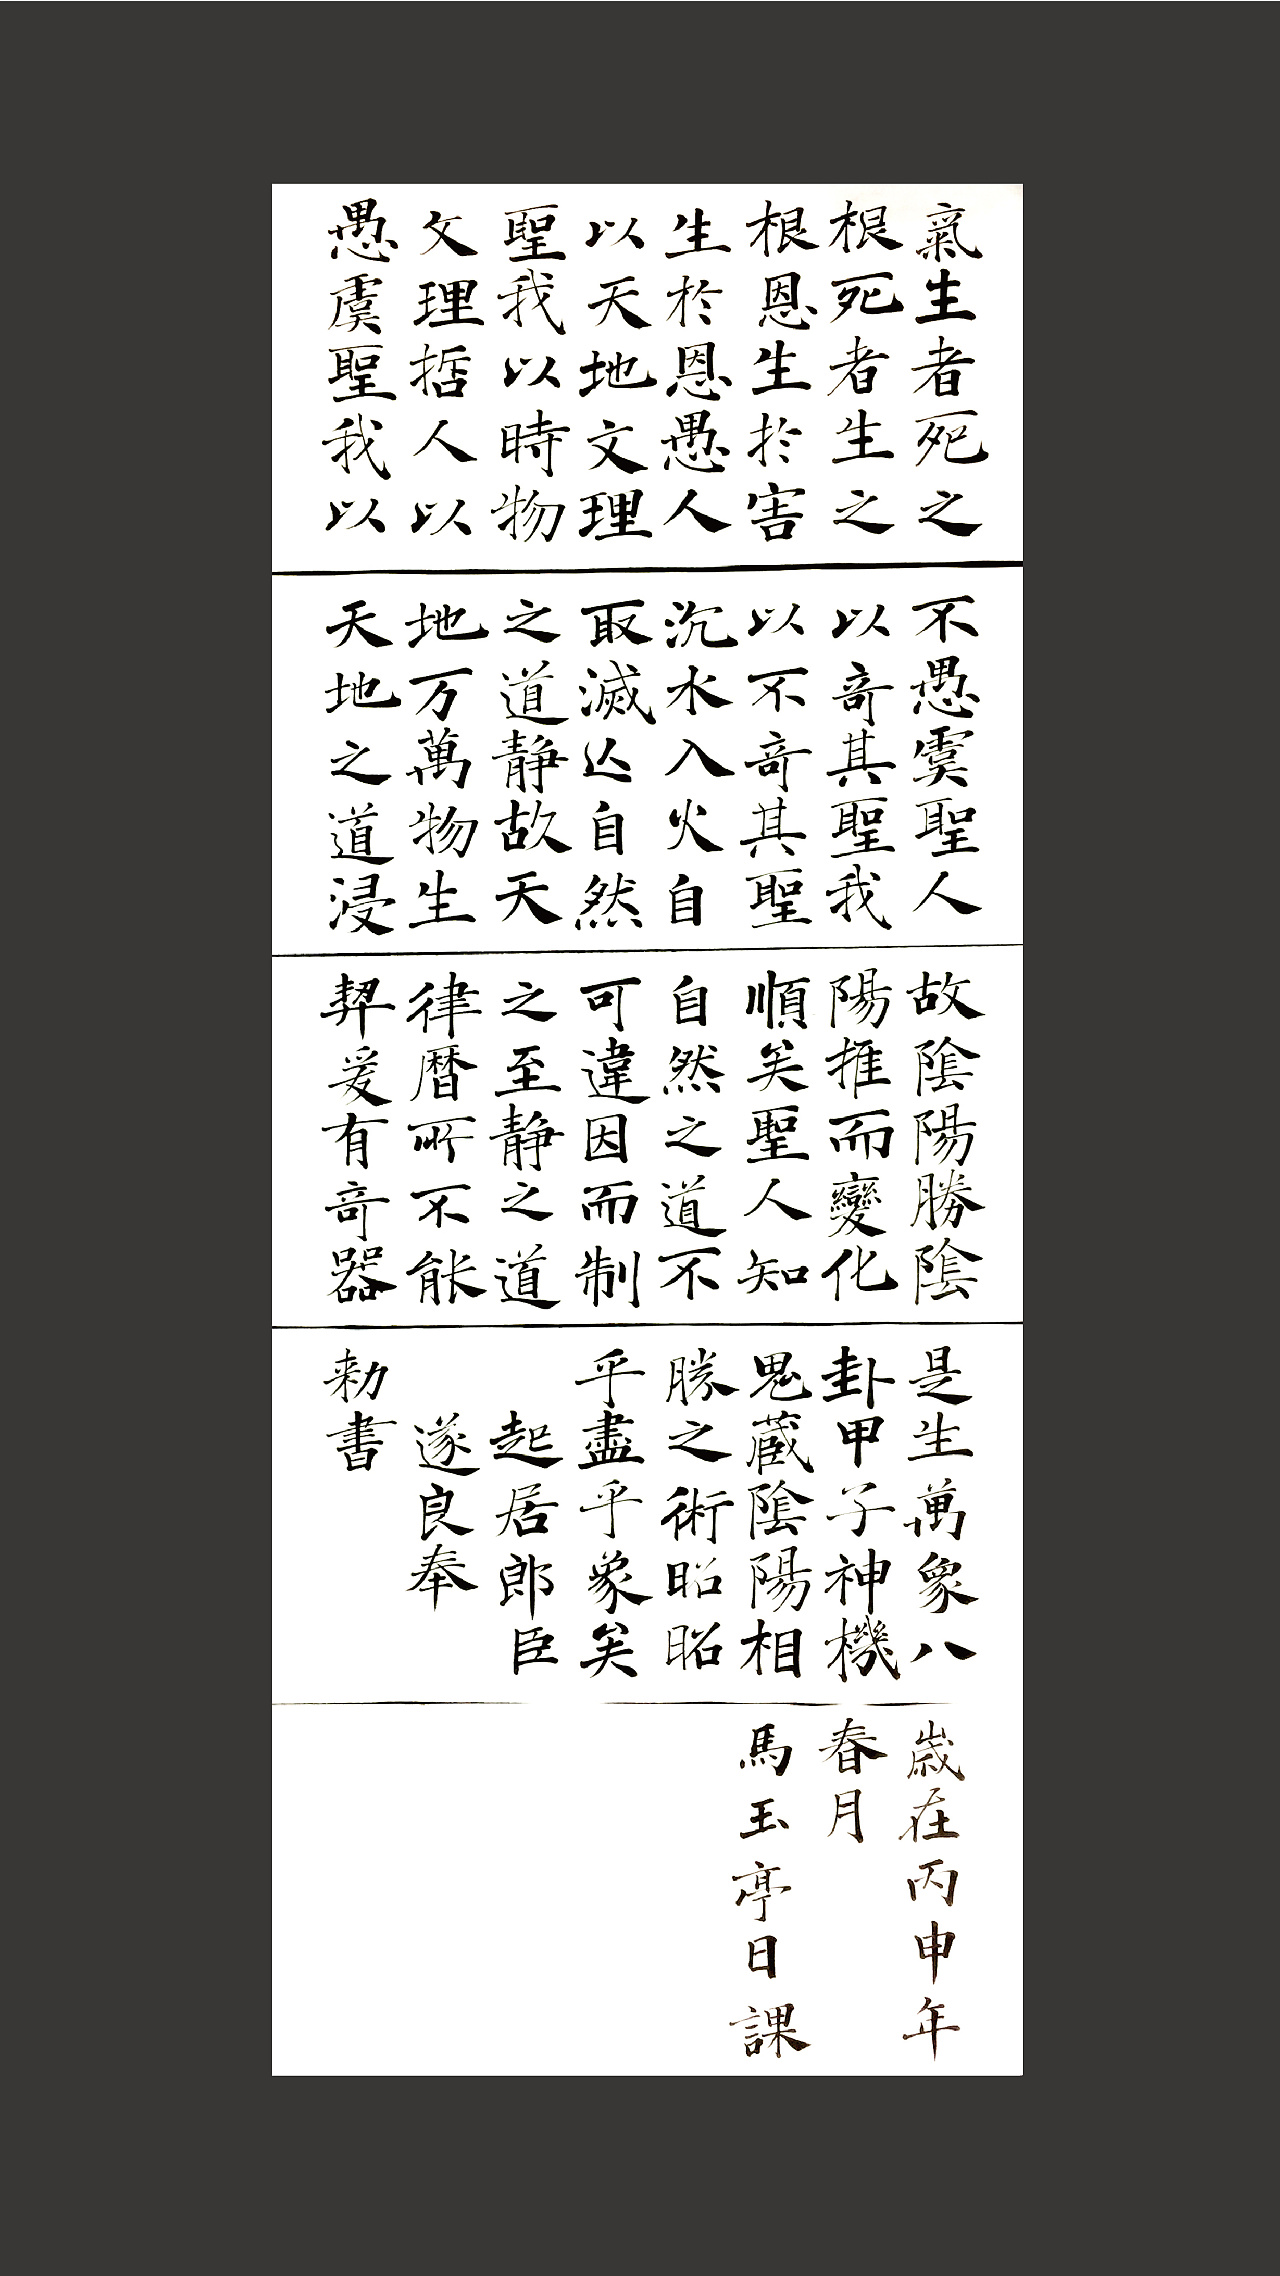 氣生者死之
根死者生之
根恩生於害
生於恩愚人
以天地文理
聖我以時物
文理哲人以
愚虞聖我以
不愚虞聖人
以奇其聖我
以不奇其聖
沉水入火自
取滅亡自然
之道静故天
地万萬物生
天地之道浸
故陰陽勝陰
陽推而變化
順矣聖人知
自然之道不
可違因而制
之至静之道
律曆所不能
契爰有奇器
是生萬象八
卦甲子神機
鬼藏陰陽相
勝之術昭昭
乎盡乎象矣
起居郎臣
遂良奉
勑書
歲在丙申年
春月
馬玉亭日課